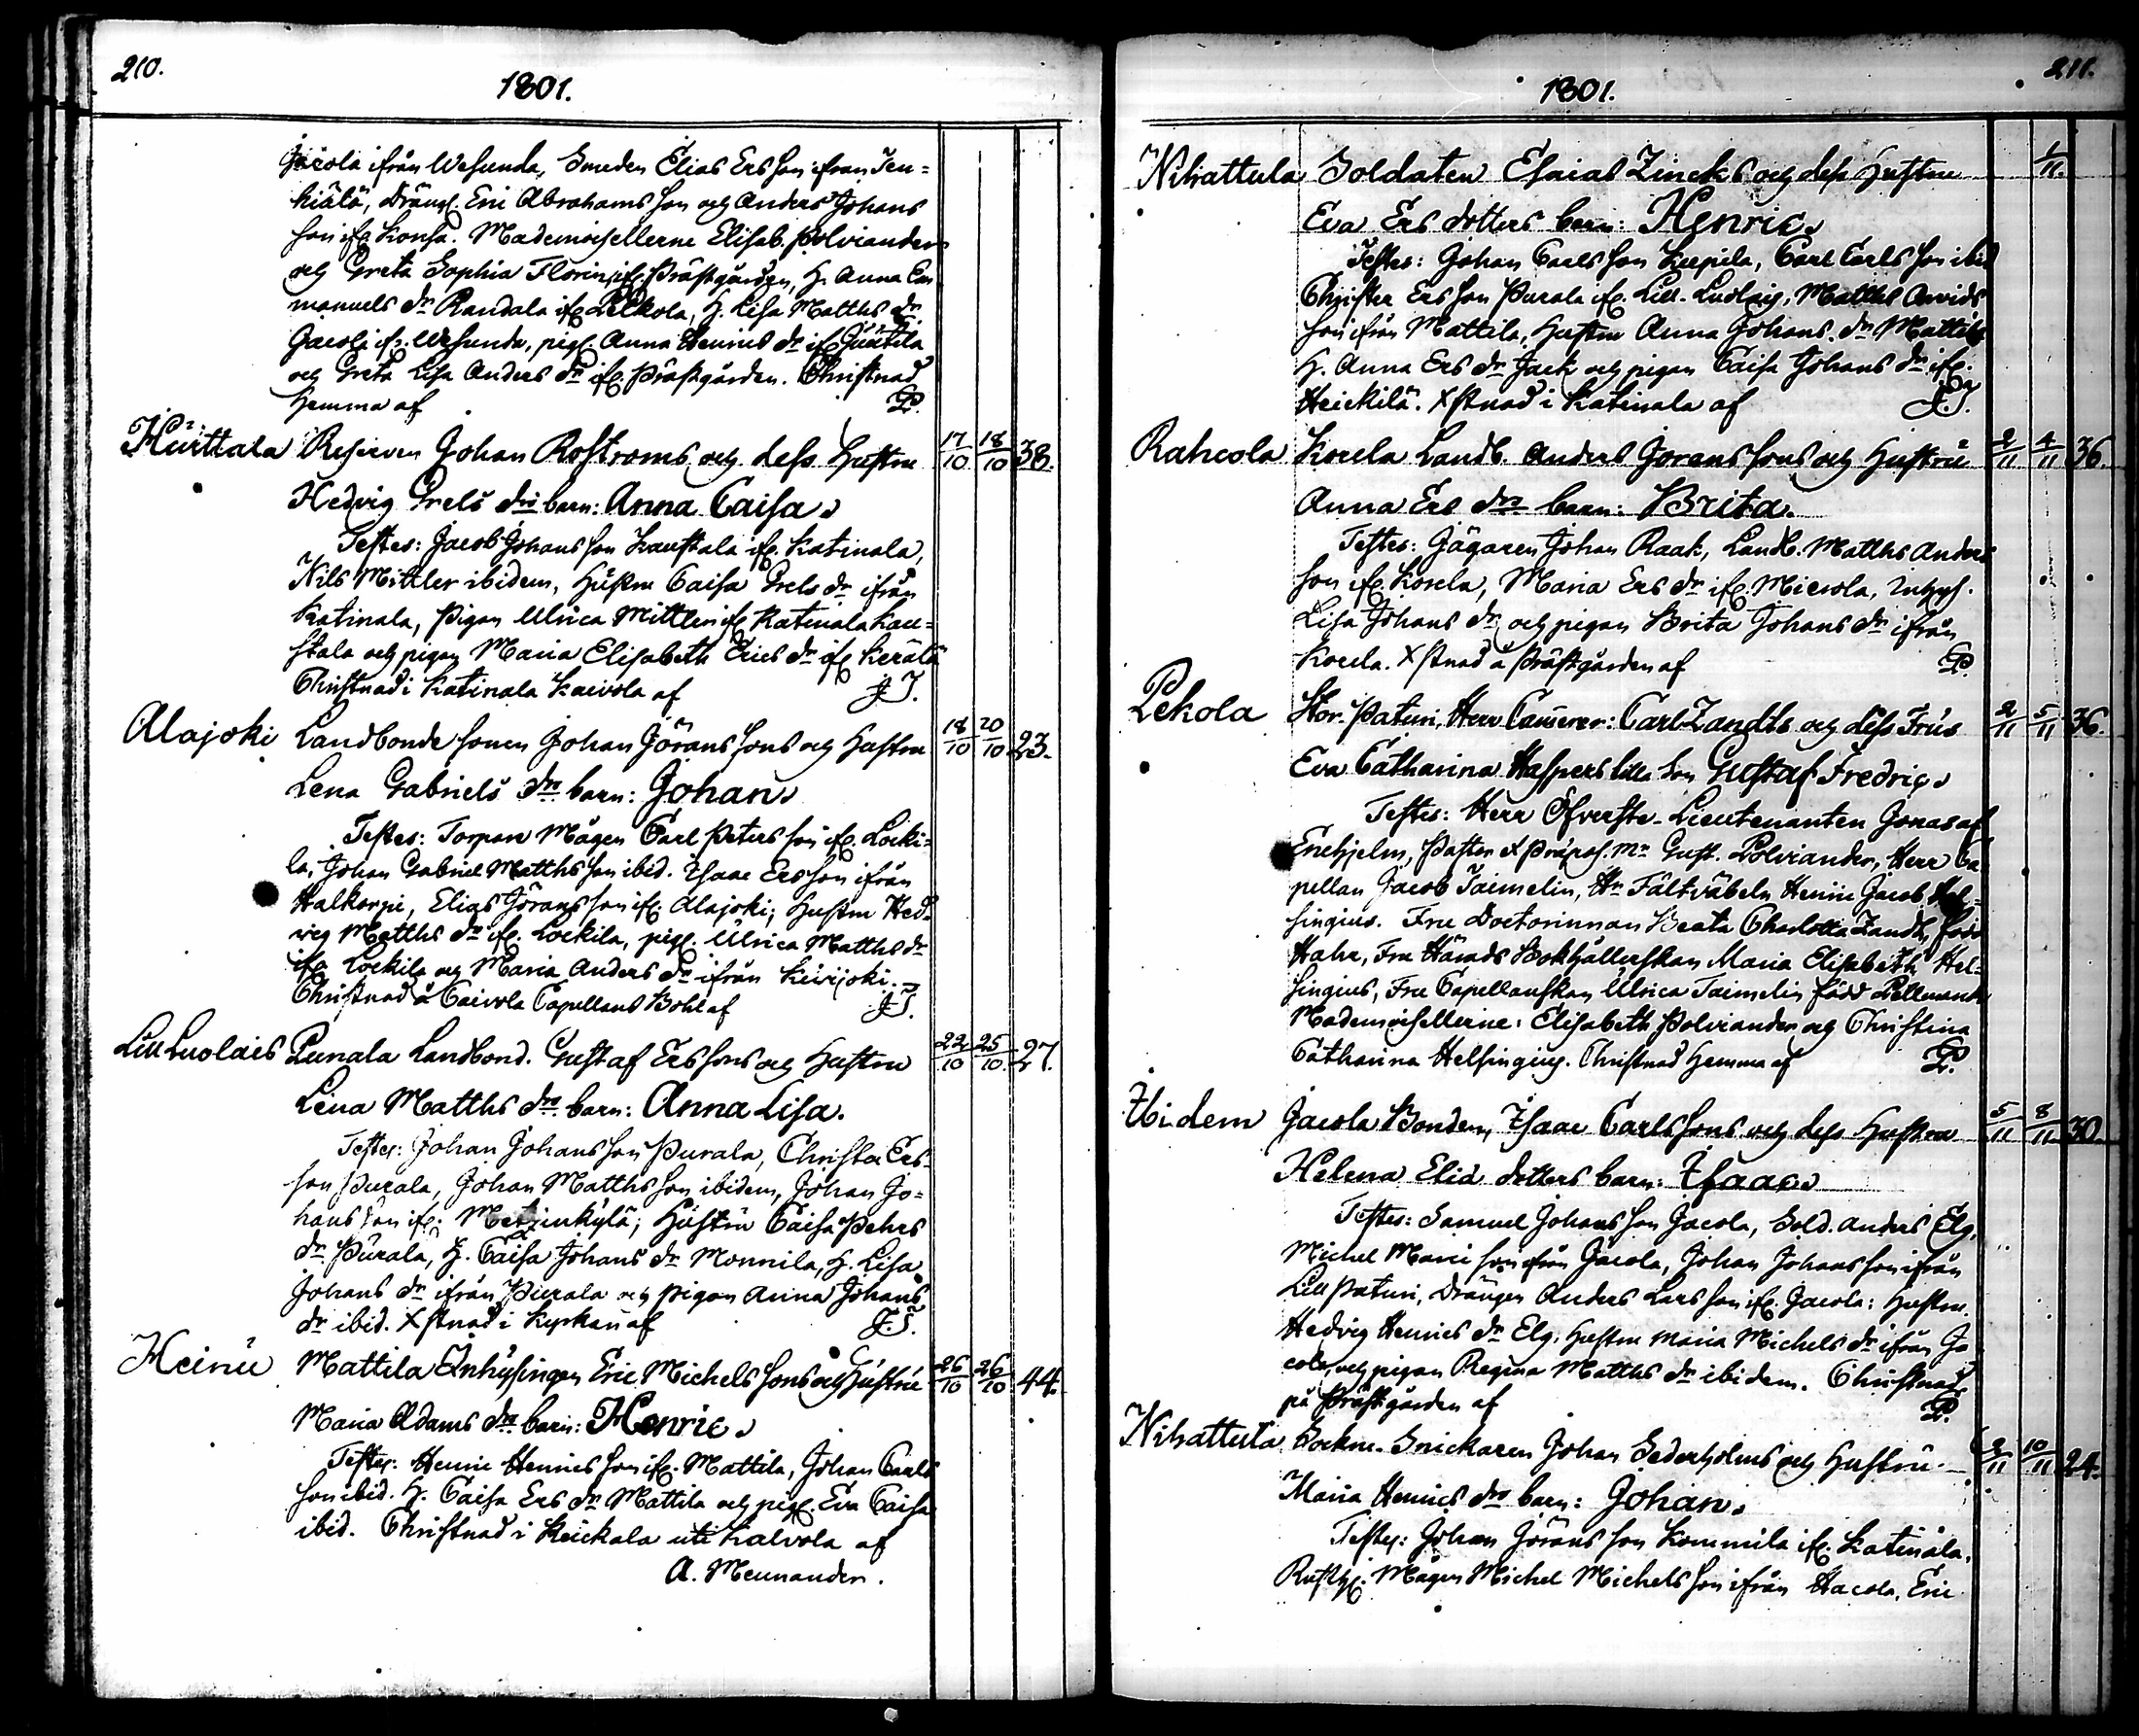 210.
1801.
Jacola ifrån Wesunda, Smeden Elias Ersson ifrån Ten=
kiälä, Dräng. Eric Abrahamsson och Anders Johans
son ifr. Konsa. Mademoisellerne Elisab. Polviander
och Greta Sophia Florin, ifr. Prästgården, H. Anna Em
manuels dr Randala ifr. Lekola, H. Lisa Matths dr
Jacola ifr. Wesunda, pig. Anna Henrics dr ifr.
och Greta Lisa Anders dr ifr. Prästgården. Christnad
hemma af P.
Hürttala Reserven Johan Roströms och dess hustru 17/10 18/10 38.
Hedvig Grels drs barn: Anna Caisa.
Testes: Jacob Johansson Kaustala ifr. Katinala,
Nils Mittler ibidem, hustru Caisa Grels dr ifrån
Katinala, Pigan Ulrica Mittler ifr. Katinala Kau=
stala och pigan Maria Elisabeth Erics dr ifr. Kerälä
Christnad i Katinala Kaivola af J. T.
Alajoki Landbonde sonen Johan Göranssons och hustru 18/10 20/10 23.
Lena Gabriels drs barn: Johan.
Testes: Torpare Mågen Carl Petersson ifr. Locki=
la, Johan Gabriel Matthsson ibid. Isaac Ersson ifrån
Halkorpi, Elias Göransson ifr. Alajoki; hustru Hed=
vig Matths dr ifr. Lockila, pig. Ulrica Matths dr
ifr. Lockila och Maria Anders dr ifrån Kivijoki.
Christnad å Caivola Capellans Bohl af J. T.
Lill Luolais Punala Landbond. Gustaf Erssons och hustru 22/10 25/10 27.
Lena Matths drs barn: Anna Lisa.
Testes: Johan Johansson Purala, Christer Ers=
son Purala, Johan Matthsson ibidem, Johan Jo=
hansson ifr. Metzinkylä; hustru Caisa Pehrs
dr Purala, H. Caisa Johans dr Monnila, H. Lisa
Johans dr ifrån Purala och pigan Anna Johans
dr ibid. Xstnad i Kyrkan af J. T.
Heinü Mattila Inhysingen Eric Michelssons och hustru 26/10 26/10 44.
Maria Adams drs barn: Henric.
Testes: Henric Henricsson ifr. Mattila, Johan Carls
son ibid. H. Caisa Ers dr Mattila och pig. Eva Caisa
ibid. Christnad i Keickala uti Kalvola af
A. Mennander.
211.
1801.
Nihattula Soldaten Esaias Zincks och dess hustru 1/11.
Eva Ers dotters barn: Henric.
Testes: Johan Carlsson Leepila, Carl Carlsson ibid
Christer Ersson Purala ifr. Lill-Luolais, Matths Arvids
son ifrån Mattila, hustru Anna Johans dr Mattila
H. Anna Ers dr Jack och pigan Caisa Johans dr ifr.
Heickilä. Xstnad i Katinala af J. T.
Rahcola Korela Landb. Anders Göranssons och hustru 2/11 4/11 36.
Anna Ers drs barn: Brita.
Testes: Jägaren Johan Raak, Landb. Matths Anders
son ifr. Korela, Maria Ers dr ifr. Mierola, Inhys.
Lisa Johans dr och pigan Brita Johans dr ifrån
Korela. Xstnad å Prästgården af P.
Lekola Stor-Paturi, Herr Camerer: Carl Zandts och dess Frus 2/11 5/11 36.
Eva Catharina Haspers lilla son Gustaf Fredric.
Testes: Herr Öfverste-Lieutenanten Jonas af
Enehjelm, Pastor & Præpos. Mr. Gust. Polviander, Herr Ca
pellan Jacob Taimelin, Hr Fältväbeln Henric Jacob Hel=
singius. Fru Doctorinnan Beata Charlotta Zandt, född
Hahn, Fru Härads Bokhållerskan Maria Elisabeth Hel=
singius, Fru Capellanskan Ulrica Taimelin född Lillmark
Mademoisellerne: Elisabeth Polviander och Christina
Catharina Helsingius. Christnad hemma af P.
Ibidem Jacola Bonden, Isaac Carlssons och dess hustru 5/11 8/11 30
Helena Elia dotters barn: Isaac.
Testes: Samuel Johansson Jacola, Sold. Anders Elg,
Michel Maricson ifrån Jacola, Johan Johansson ifrån
Lill Paturi, Drängen Anders Larsson ifr. Jacola: hustru
Hedvig Henrics dr Elg, hustru Maria Michels dr ifrån Ja
cola, och pigan Regina Matths dr ibidem. Christnad
på Prästgården af P.
Nihattula Sockne-Snickaren Johan Sederholms och hustru 9/11 10/11 24.
Maria Henrics drs barn: Johan.
Testes: Johan Göransson Kommila ifr. Katinala.
Rusth. Mågen Michel Michelsson ifrån Hacola, Eric